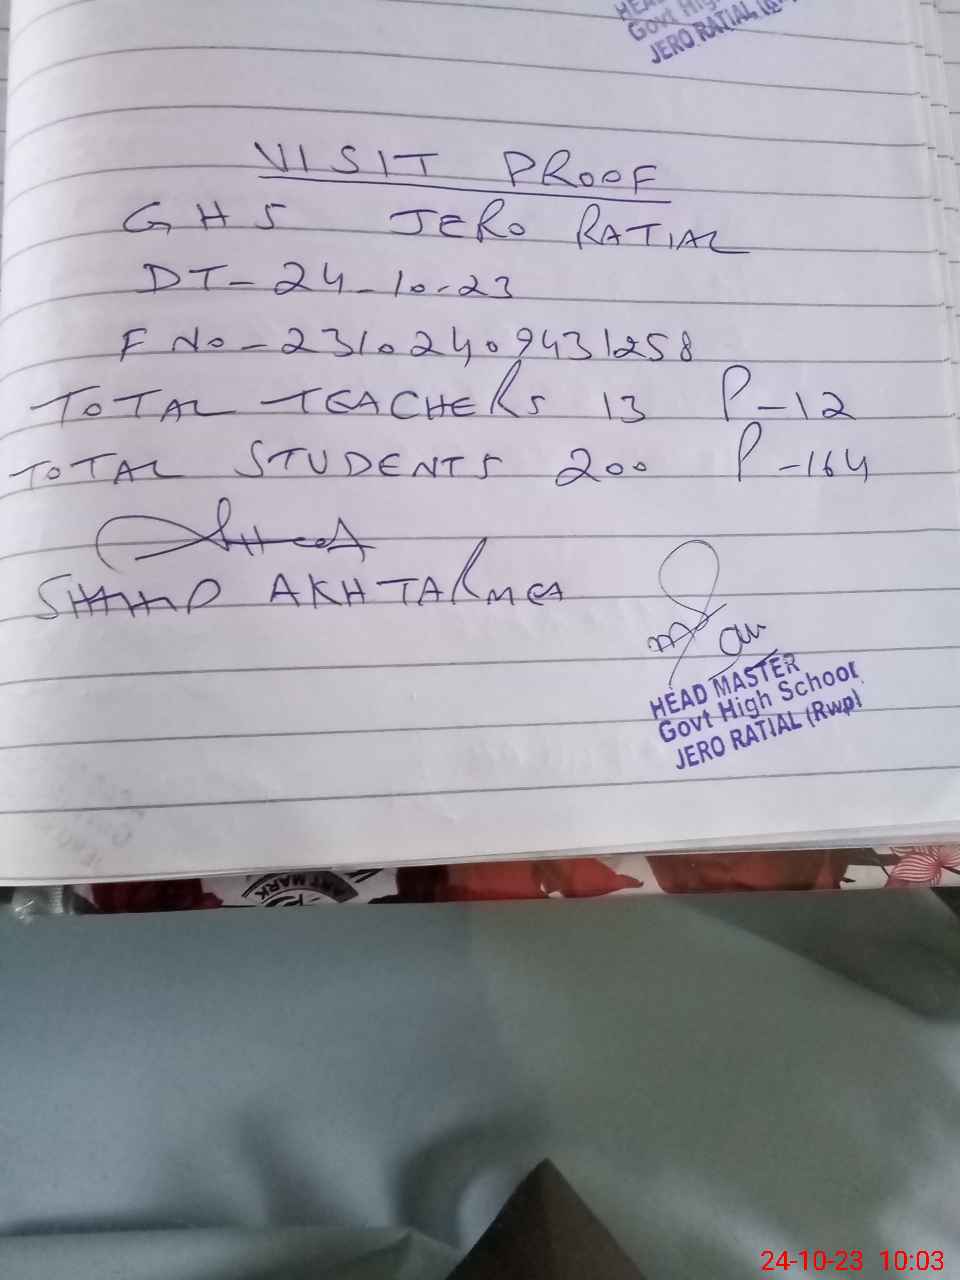 Govt High
JERO RATIAL
VISIT PROOF
GHS JERO RATIAL
DT- 24-10-23
F No - 23102409431258
TOTAL TEACHERS 13 P-12
TOTAL STUDENTS 200 P-164
AKHTAR MEA
HEAD MASTER
Govt High School
JERO RATIAL (Rwp)
ART MARK
24-10-23 10:03